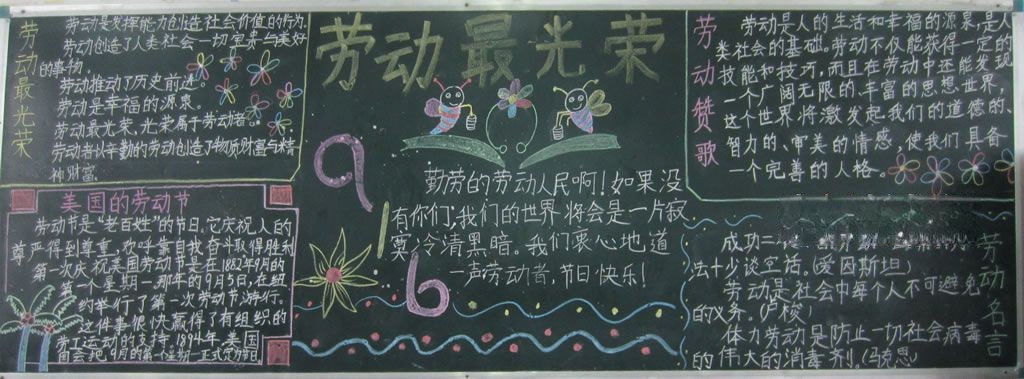 劳动最光荣
劳动是发挥能力创造社会价值的行为.
劳动创造了人类社会一切宝贵与美好
的事物.
劳动推动了历史前进。
劳动是幸福的源泉。
劳动最光荣,光荣属于劳动者.
劳动者以辛勤的劳动创造了物质财富与精
神财富.
美国的劳动节
劳动节是“老百姓”的节日.它庆祝人的
尊严得到尊重,欢呼靠自我奋斗取得胜利
第一次庆祝美国劳动节是在1882年9月的
第一个星期一那年的9月5日,在纽
约举行了第一次劳动节游行。
这件事很快赢得了有组织的
劳工运动的支持.1894年,美国
国会把9月的第一个星期一正式定为节日
劳动最光荣
勤劳的劳动人民啊!如果没
有你们,我们的世界将会是一片寂
寞冷清黑暗。我们衷心地道
一声劳动者,节日快乐!
劳动赞歌
劳动是人的生活和幸福的源泉,是人
类社会的基础.劳动不仅能获得一定的
技能和技巧,而且在劳动中还能发现
一个广阔无限的.丰富的思想世界,
这个世界将激发起我们的道德的.
智力的、审美的情感,使我们具备
一个完善的人格。
劳动名言
成功二
法十少谈空话。(爱因斯坦)
劳动是社会中每个人不可避免
的义务。(卢梭)
体力劳动是防止一切社会病毒
的伟大的消毒剂。(马克思)